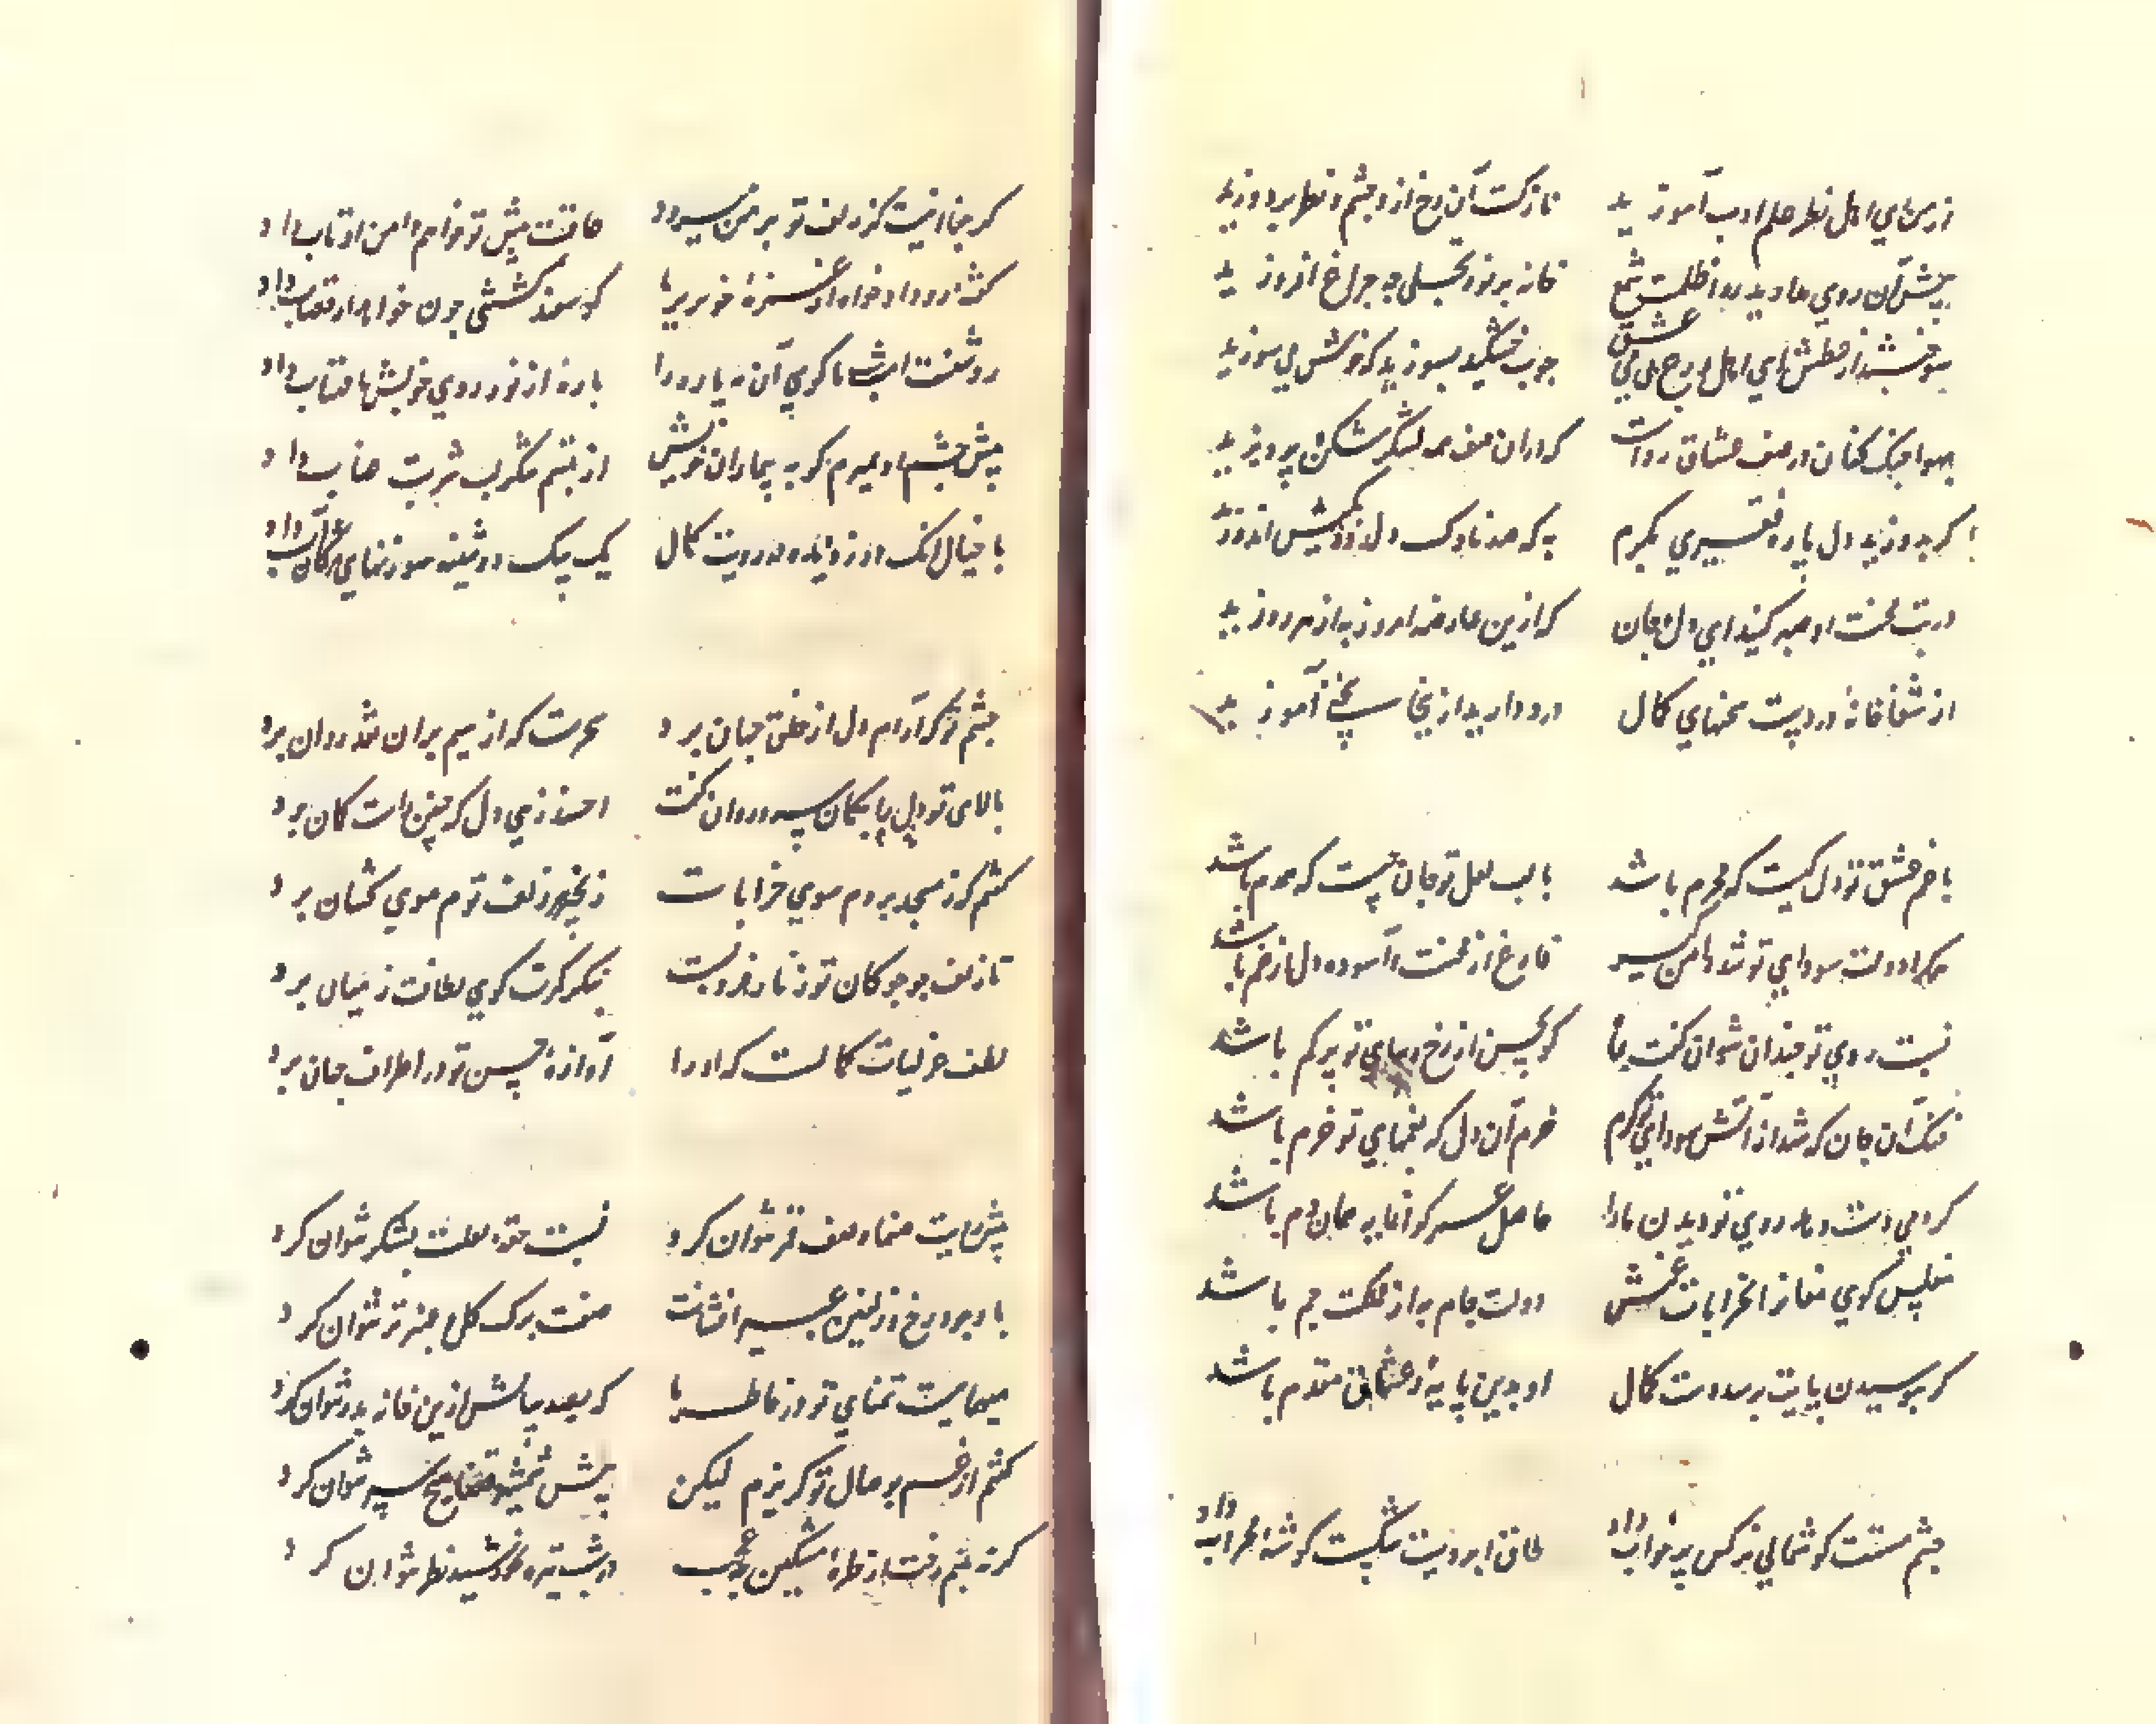 زمن ای اهل نظر علم ادب آموزید نازکست آن رخ ازو چشم و نظر بردوزید
پیش آن روی میارید بدان ظلمت شمع خانه پر نور تجلی چه چراغ افروزید
سوخت ای اهل ورع می عشق چوب خشکید بسوزید که خوش می سوزید
جنک کنان در صف عشاق رواست که دران صف همه لشکر شکن پیروزید
کر بدوزید دل پاره فقیری بکرم به که صد ناوک دلدوز
درتب محنت او صبر کنید ای دل و جان که ازین عارضه امروز به از هر روزید
از شفاخانه دردست سخنهای کمال درد دارید ازینجا سخنی آموزید
با غم عشق تو دل کیست که محرم باشد با لب لعل تو جان چیست که همدم باشد
هرکرا دولت سودای تو شد دامن کیر فارغ از محنت و آسوده دل از غم باشد
نسبت روی تو چندان نتوان کفت بماه کو بحسن از رخ زیبای تو پر کم باشد
خنک آن جان که شد از آتش سودای تو کرم خرم آن دل که بغمهای تو خرم باشد
کر دمی دست دهد روی تو دیدن ما را حاصل عمر کرانمایه همان دم باشد
مفلس کوی مغانرا بخرابات غمش دولت جام به از مملکت جم باشد
کر ببوسیدن پایت برسد دست کمال او بدین پایه ز عشاق مقدم باشد
چشم مستت کوشمالی نرکس پر خواب داد طاق ابرویت شکست کوشه محراب داد
کر جفا اینست کز زلف تو بر من میرود عاقبت پیش تو خواهم دامن او تاب داد
کشته او داد خواه از غمزه خونریز را کو سمند کشتی چون خواهد از قصاب داد
روشنست امشب ما کوی آن مه پاره را باره از نور روی خویش با مهتاب داد
پیش چشم او بمیرم کو به بیماران خویش از تبسم شکر لب شربت عناب داد
با خیال آنک او زد دیده در رویت کمال
چشم تو که آرام دل از خلق جهان برد سحریست که از سیم بران نقد روان برد
بالای تو دل را بکمان سرو روان کفت احسنت زهی دل که چنین راست کمان برد
کفتم که ز مسجد بردم سوی خرابات زنجیر زلف توم موی کشان برد
تا زلف چو چوکان تو زنار فرو بست بنکر که کوی لطافت ز میان برد
لطف غزلیات کمالست که او را آوازه حسن تو در اطراف جهان برد
پیش رویت صنما وصف قمر نتوان کرد نسبت حقه لعلت بشکر نتوان کرد
با وجود رخ و زلفین عبیر افشانت صفت برک کل و عنبر تر نتوان کرد
میهمانیست تمنای تو در خاطر ما که بصد سالش ازین خانه بدر نتوان کرد
کفتم از غم بوصال تو کریزم لیکن پیش شمشیر قضا هیچ سپر نتوان کرد
کر نه چشم رفت از طره مشکین چه عجب در شب تیره بخورشید نظر نتوان کرد